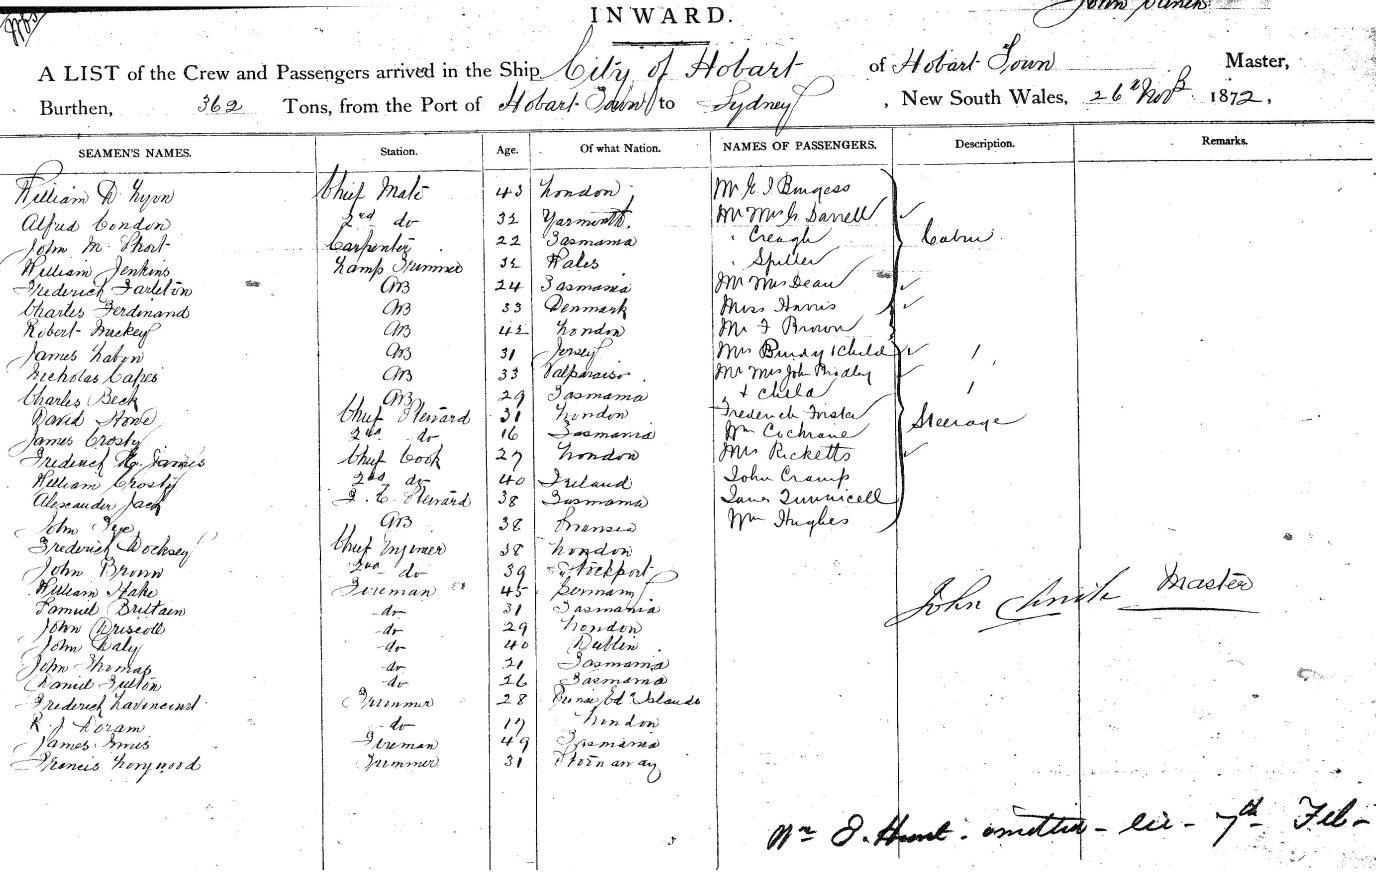 INWARD.
A LIST of the Crew and Passengers arrived in the Ship City of Hobart of Hobart Town Master,
Burthen, 362 Tons, from the Port of Hobart Town to Sydney, New South Wales, 26th Novr 1872,
SEAMEN'S NAMES. Station. Age. Of what Nation. NAMES OF PASSENGERS. Description. Remarks.
William D Lyon Chief Mate 43 London Mr E J Burgess
Alfred Condon 2nd do 32 Yarmouth Mr Mrs G Darrell
John M. Short Carpenter 22 Tasmania Creagh Cabin
William Jenkins Lamp Trimmer 32 Wales Spiller
Frederick Tarleton AB 24 Tasmania Mr Mrs Dean
Charles Ferdinand AB 33 Denmark Miss Harris
Robert Huckey AB 42 London Mr F Brown
James AB 31 Jersey Mrs Bundy & Child 1
Nicholas Capes AB 33 Valparaiso Mr Mrs John Bradley
Charles Beck AB 29 Tasmania & Child 1
David Howe Chief Steward 31 London Frederick Forster Steerage
James Crosby 2nd do 16 Tasmania Wm Cochrane
Frederick G. James Chief Cook 27 London Mrs Ricketts
William Crosby 2nd do 40 Ireland John Cramp
Alexander Jack F. C. Steward 38 Tasmania Tunnicell
John Tye AB 38 Swansea Wm Hughes
Frederick Docksey Chief Engineer 38 London
John Brown 2nd do 39 Stockport
William Hake Fireman 45 Germany
Samuel Brittain do 31 Tasmania
John Driscoll do 29 London
John Daly do 40 Dublin
John Thomas do 21 Tasmania
Daniel Fulton do 26 Tasmania
Frederick Trimmer 28 Prince Ed Islands
R. J. Doram do 17 London
James Innis Fireman 49 Tasmania
Francis Trimmer 31 Stornaway
John Master
Wm J. Hunt - omitted - 7th Feb -